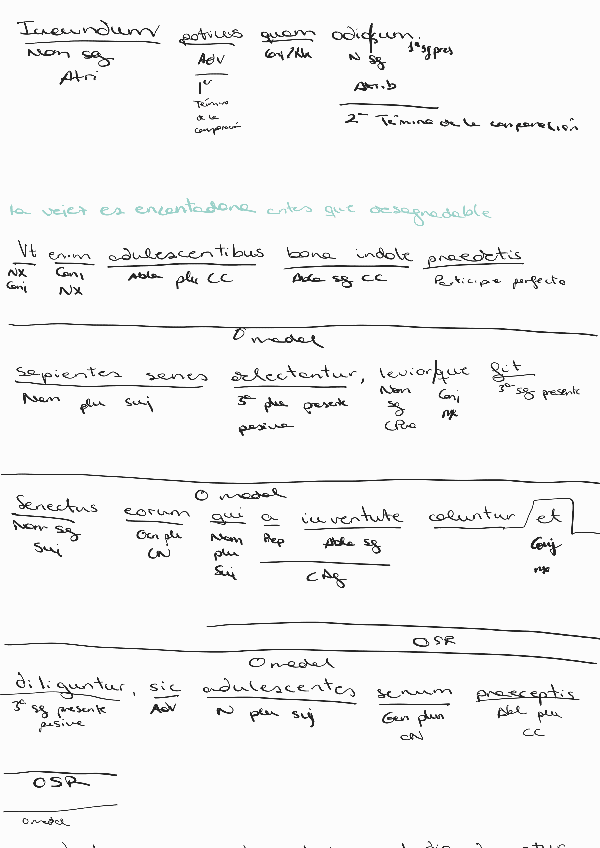 Iucundum potius quam odiosum.
Nom sg Adv Conj/Nx N sg 1ª sg pres
Atri 1er Atrib
Término
de la
comparació 2º Término de la comparación
la vejez es encantadora antes que desagradable
Vt enim adulescentibus bona indole praeditis
NX Conj Abla plu CC Abla sg CC Participio perfecto
Conj NX
O modal
sapientes senes delectantur, leviorque fit
Nom plu suj 3ª plu presente Nom Conj 3ª sg presente
pasiva sg nx
CPvo
O modal
Senectus eorum qui a iuventute coluntur et
Nom sg Gen plu Nom Prep Abla sg Conj
Suj CN plu nx
Suj CAg
OSR
O modal
diliguntur, sic adulescentes senum praeceptis
3ª sg presente Adv N plu suj Gen plun Abl plu
pasiva CN CC
OSR
O modal